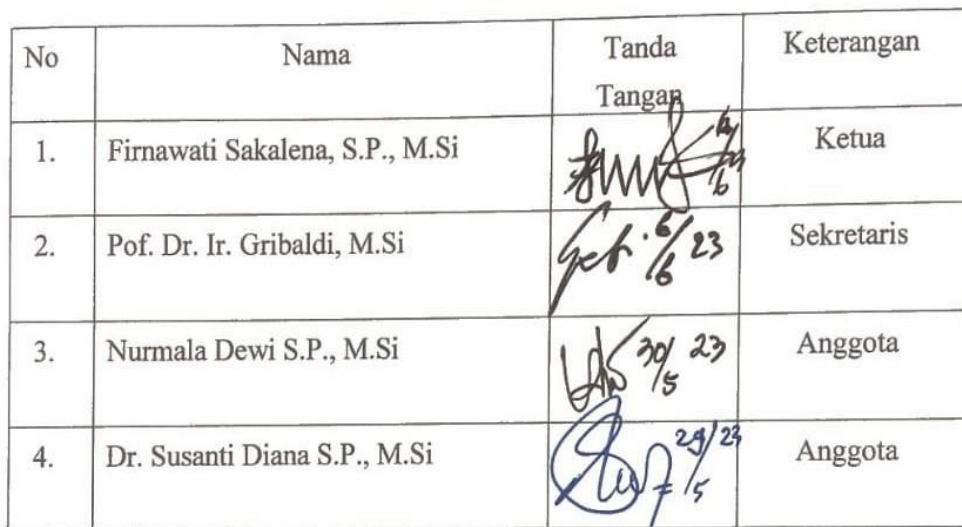 No Nama Tanda Tangan Keterangan
1. Firnawati Sakalena, S.P., M.Si Ketua
2. Pof. Dr. Ir. Gribaldi, M.Si 6/6 23 Sekretaris
3. Nurmala Dewi S.P., M.Si 30/5 23 Anggota
4. Dr. Susanti Diana S.P., M.Si 29/5 23 Anggota